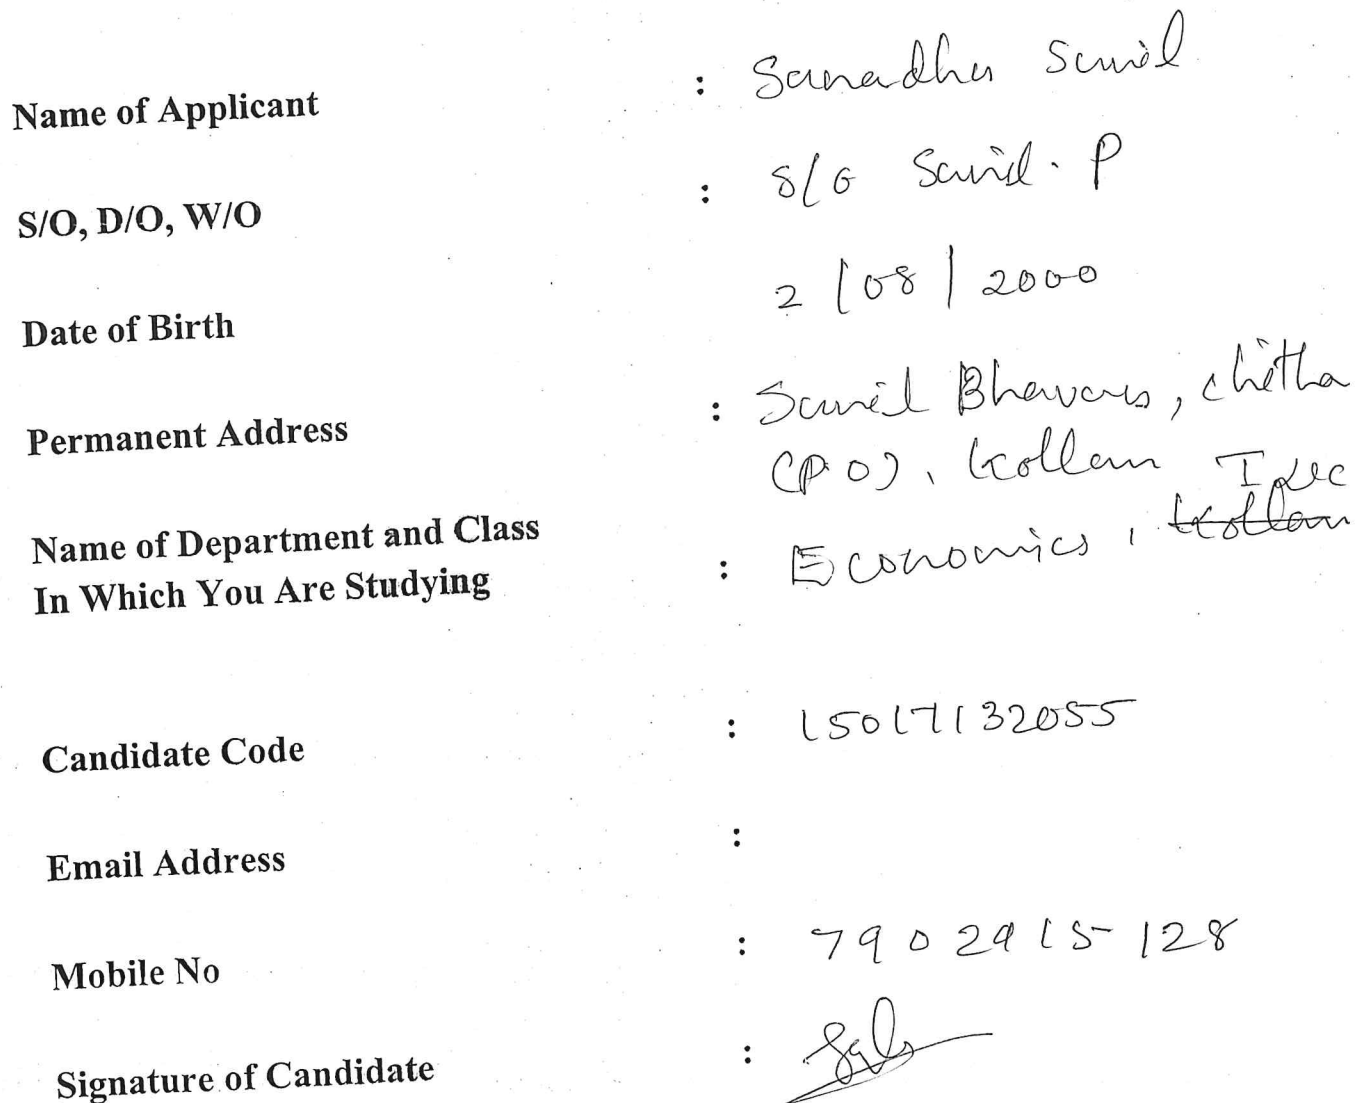 Name of Applicant : Sanadhu Sunil
S/O, D/O, W/O : S/O Sunil. P
Date of Birth 2/08/2000
Permanent Address : Sunil Bhavan, chitha
(P.O), kollam
Name of Department and Class : Economics, I
In Which You Are Studying
Candidate Code : 15017132055
Email Address :
Mobile No : 7902915128
Signature of Candidate :